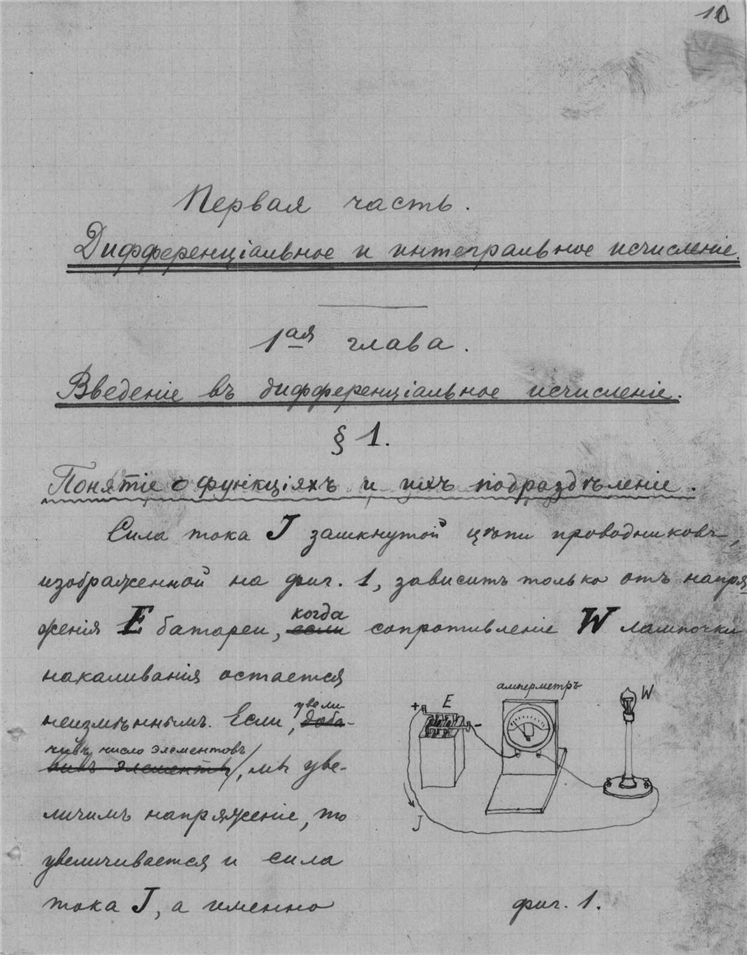 10
Первая часть.
Дифференціальное и интегральное исчисленіе.
1ая глава.
Введеніе въ дифференціальное исчисленіе.
§ 1.
Понятіе о функціяхъ и ихъ подраздѣленіе.
Сила тока J замкнутой цѣпи проводниковъ,
изображенной на фиг. 1, зависитъ только отъ напря
женія E батареи, когда если сопротивленіе W лампочки
накаливанія остается
неизмѣннымъ. Если, увели-
чивъ число элементовъ
элементъ, мы уве-
личимъ напряженіе, то
увеличивается и сила
тока J, а именно
амперметръ
+ E -
W
J
фиг. 1.